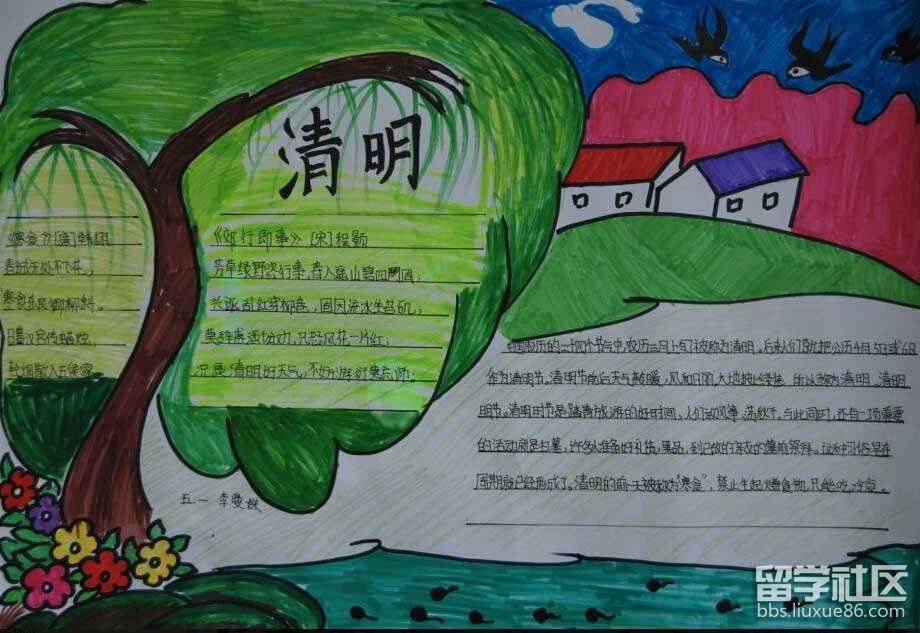 清明
《寒食》[唐]韩翃
春城无处不飞花,
寒食东风御柳斜。
日暮汉宫传蜡烛,
轻烟散入五侯家
《郊行即事》[宋]程颢
芳草绿野恣行事,春入遥山碧四围;
兴逐乱红穿柳巷,困因流水坐苔矶;
莫辞盏酒十分劝,只恐风花一片红;
况是清明好天气,不妨游衍莫忘归;
中国农历的二十四个节气中,农历三月上旬被称为清明。后来人们就把公历4月5日或6日
作为清明节。清明节前后天气转暖,风和日丽,大地披上绿装,所以称为清明,清明
明节。清明时节是踏青旅游的好时间,人们动风筝,荡秋千。与此同时,还有一项重要
的活动就是扫墓,许多人准备好礼物,果品,到已故的亲友的墓前祭拜。这种习俗早在
周期就已经形成了。清明的前一天被称为"寒食",禁止生起火煮食物,只能吃冷食。
五.一 李
留学社区
bbs.liuxue86.com